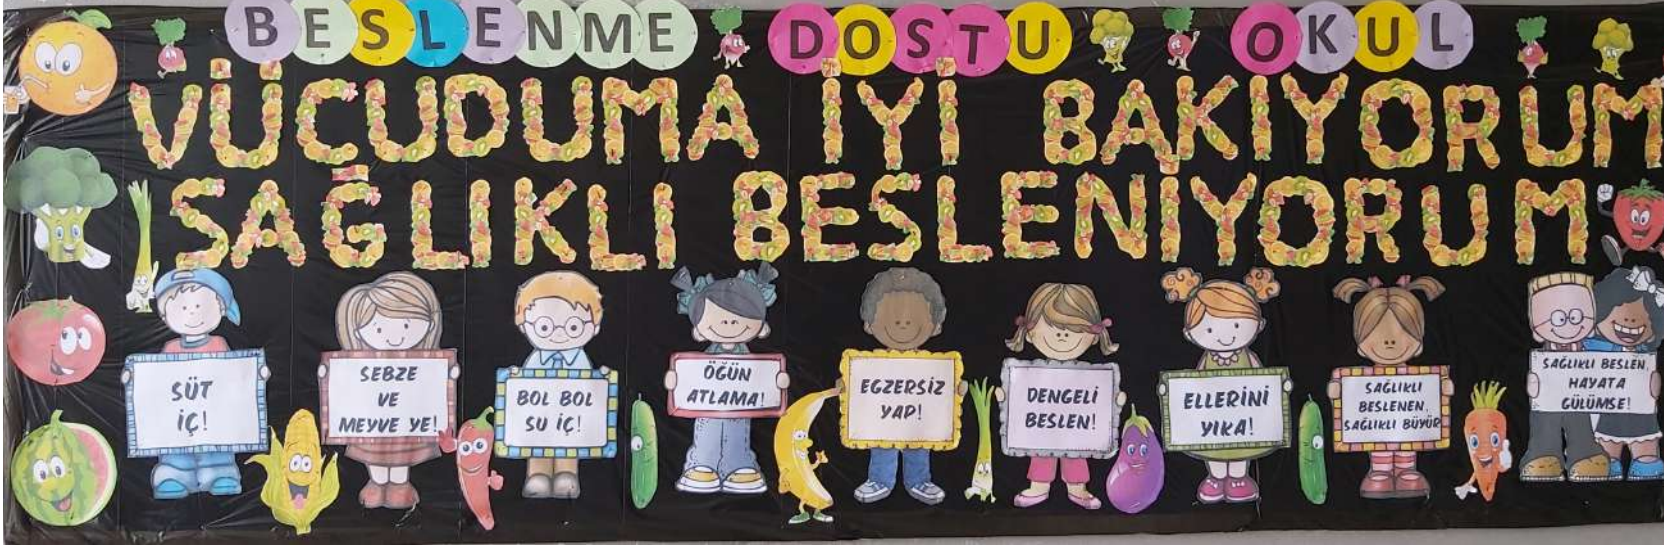 BESLENME DOSTU OKUL
VÜCUDUMA İYİ BAKIYORUM
SAĞLIKLI BESLENİYORUM
SÜT
İÇ!
SEBZE
VE
MEYVE YE!
BOL BOL
SU İÇ!
ÖĞÜN
ATLAMA!
EGZERSİZ
YAP!
DENGELİ
BESLEN!
ELLERİNİ
YIKA!
SAĞLIKLI
BESLENEN,
SAĞLIKLI BÜYÜR
SAĞLIKLI BESLEN,
HAYATA
GÜLÜMSE!